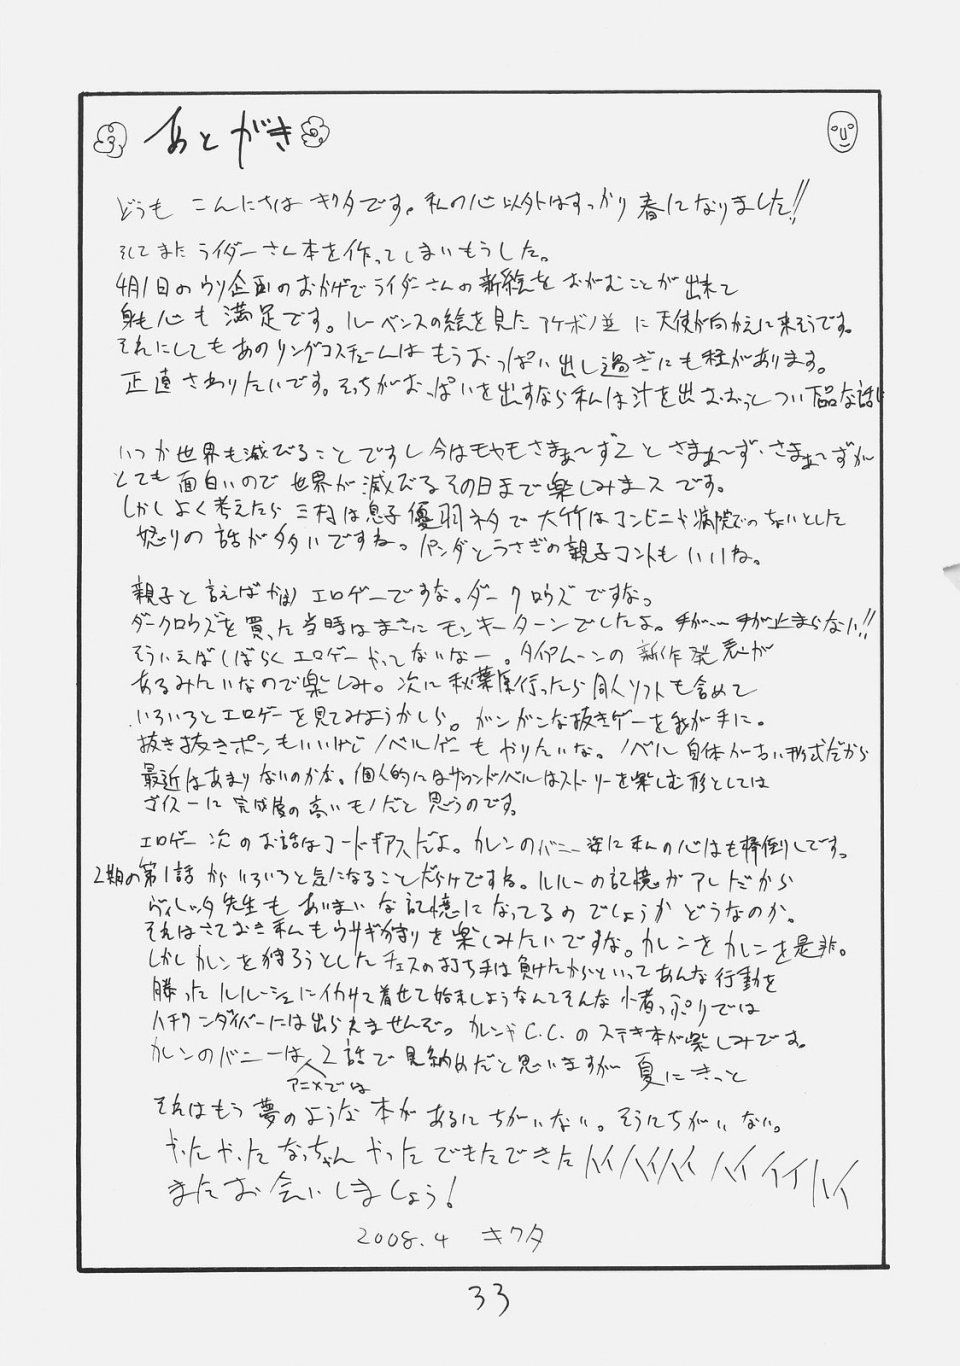 あとがき
どうも こんにちは キクタです。私の心以外はすっかり 春になりました!!
そしてまた ライダーさん本を作ってしまいもうした。
4月1日のウソ企画のおかげでライダーさんの新絵をおがむことが出来て
身も心も満足です。ルーベンスの絵を見た アケボノ並に 天使が向かえに来そうです。
それにしてもあのリングコスチュームはもうおっぱい出し過ぎにも程があります。
正直さわりたいです。そっちがおっぱいを出すなら私は汁を出おおっとつい下品な話に
いつか世界も滅びることですし今はモヤモヤさまぁ〜ず2とさまぁ〜ず・さまぁ〜ずが
とても面白いので世界が滅びるその日まで楽しみまスです。
しかしよく考えたら三村は息子優羽ネタで大竹はコンビニや病院でのちょいとした
怒りの話が多いですね。パンダとうさぎの親子コントもいいね。
親子と言えばかほりエロゲーですな。ダークロウズですな。
ダークロウズを買った当時はまさにモンキーターンでしたよ。手が…手が止まらない!!
そういえばしばらくエロゲーやってないなー。タイアムーンの新作発表が
あるみたいなので楽しみ。次に秋葉原行ったら同人ソフトも含めて
いろいろとエロゲーを見てみようかしら。ガンガンな抜きゲーを我が手に。
抜き抜きポンもいいけどノベルゲーもやりたいな。ノベル自体が古い形式だから
最近はあまりないのかな。個人的にはサウンドノベルはストーリーを楽しむ形としては
ゴイスーに完成度の高いモノだと思うのです。
エロゲー次のお話はコードギアスだよ。カレンのバニー姿に私の心はも棒倒しです。
2期の第1話からいろいろと気になることだらけですね。ルルーの記憶がアレだから
ヴィレッタ先生もあいまいな記憶になってるのでしょうかどうなのか。
それはさておき私もウサギ狩りを楽しみたいですな。カレンをカレンを是非。
しかしカレンを狩ろうとしたチェスの打ち手は負けたからといってあんな行動を
勝ったルルーシュにイカサマ着せて始末しようなんてそんな小者っぷりでは
ハチワンダイバーには出られませんぞ。カレンやC.C.のステキ本が楽しみです。
カレンのバニーは2話で見納めだと思いますが夏にきっと
アニメでは
それはもう夢のような本があるにちがいない。そうにちがいない。
やったやったなっちゃんやったできたできたハイハイハイ ハイ イイ ハイ
またお会いしましょう!
2008.4 キクタ
33